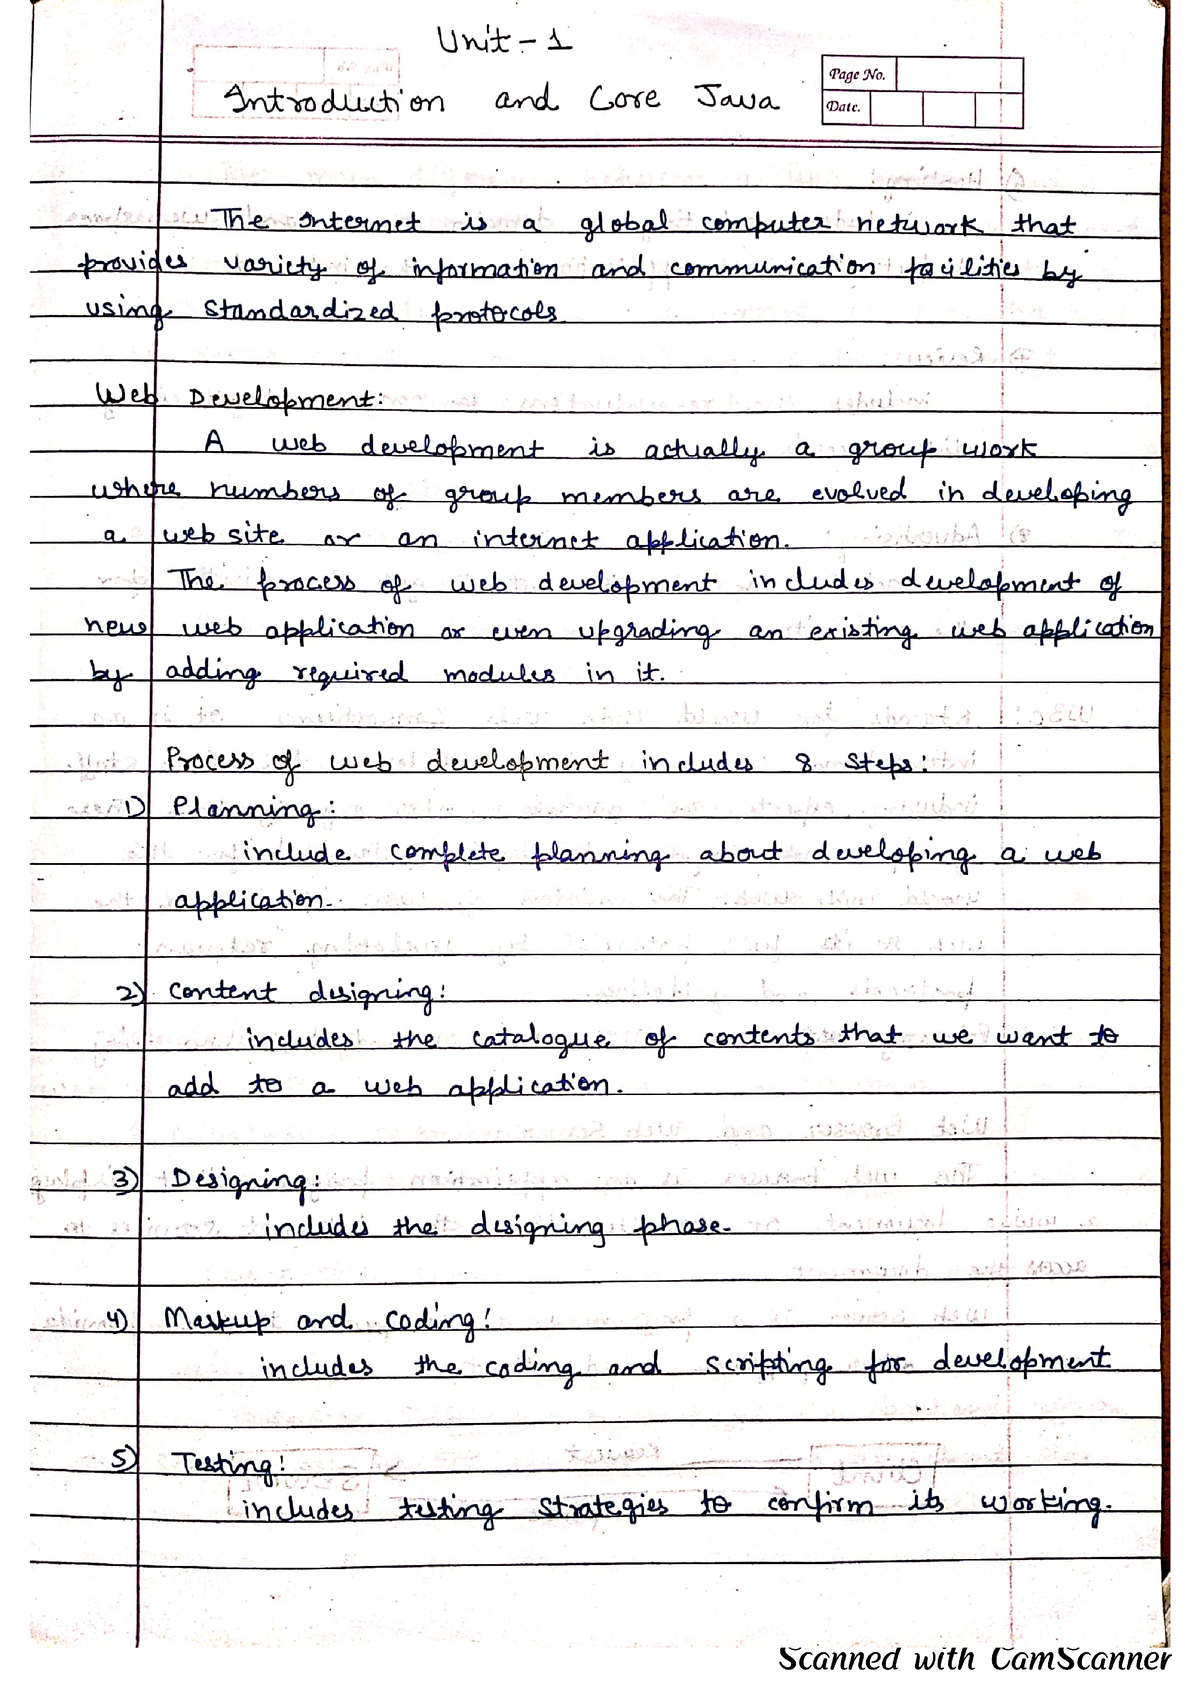 Unit - 1
Introduction and Core Java
Page No.
Date.
The Internet is a global computer network that
provides variety of information and communication facilities by
using standardized protocols
Web Development:
A web development is actually a group work
where numbers of group members are evolved in developing
a web site or an internet application.
The process of web development includes development of
new web application or even upgrading an existing web application
by adding required modules in it.
Process of web development includes 8 Steps:
1) Planning:
include complete planning about developing a web
application.
2) Content designing:
includes the catalogue of contents that we want to
add to a web application.
3) Designing:
includes the designing phase.
4) Markup and coding:
includes the coding and scripting for development
5) Testing:
includes testing strategies to confirm its working.
Scanned with CamScanner